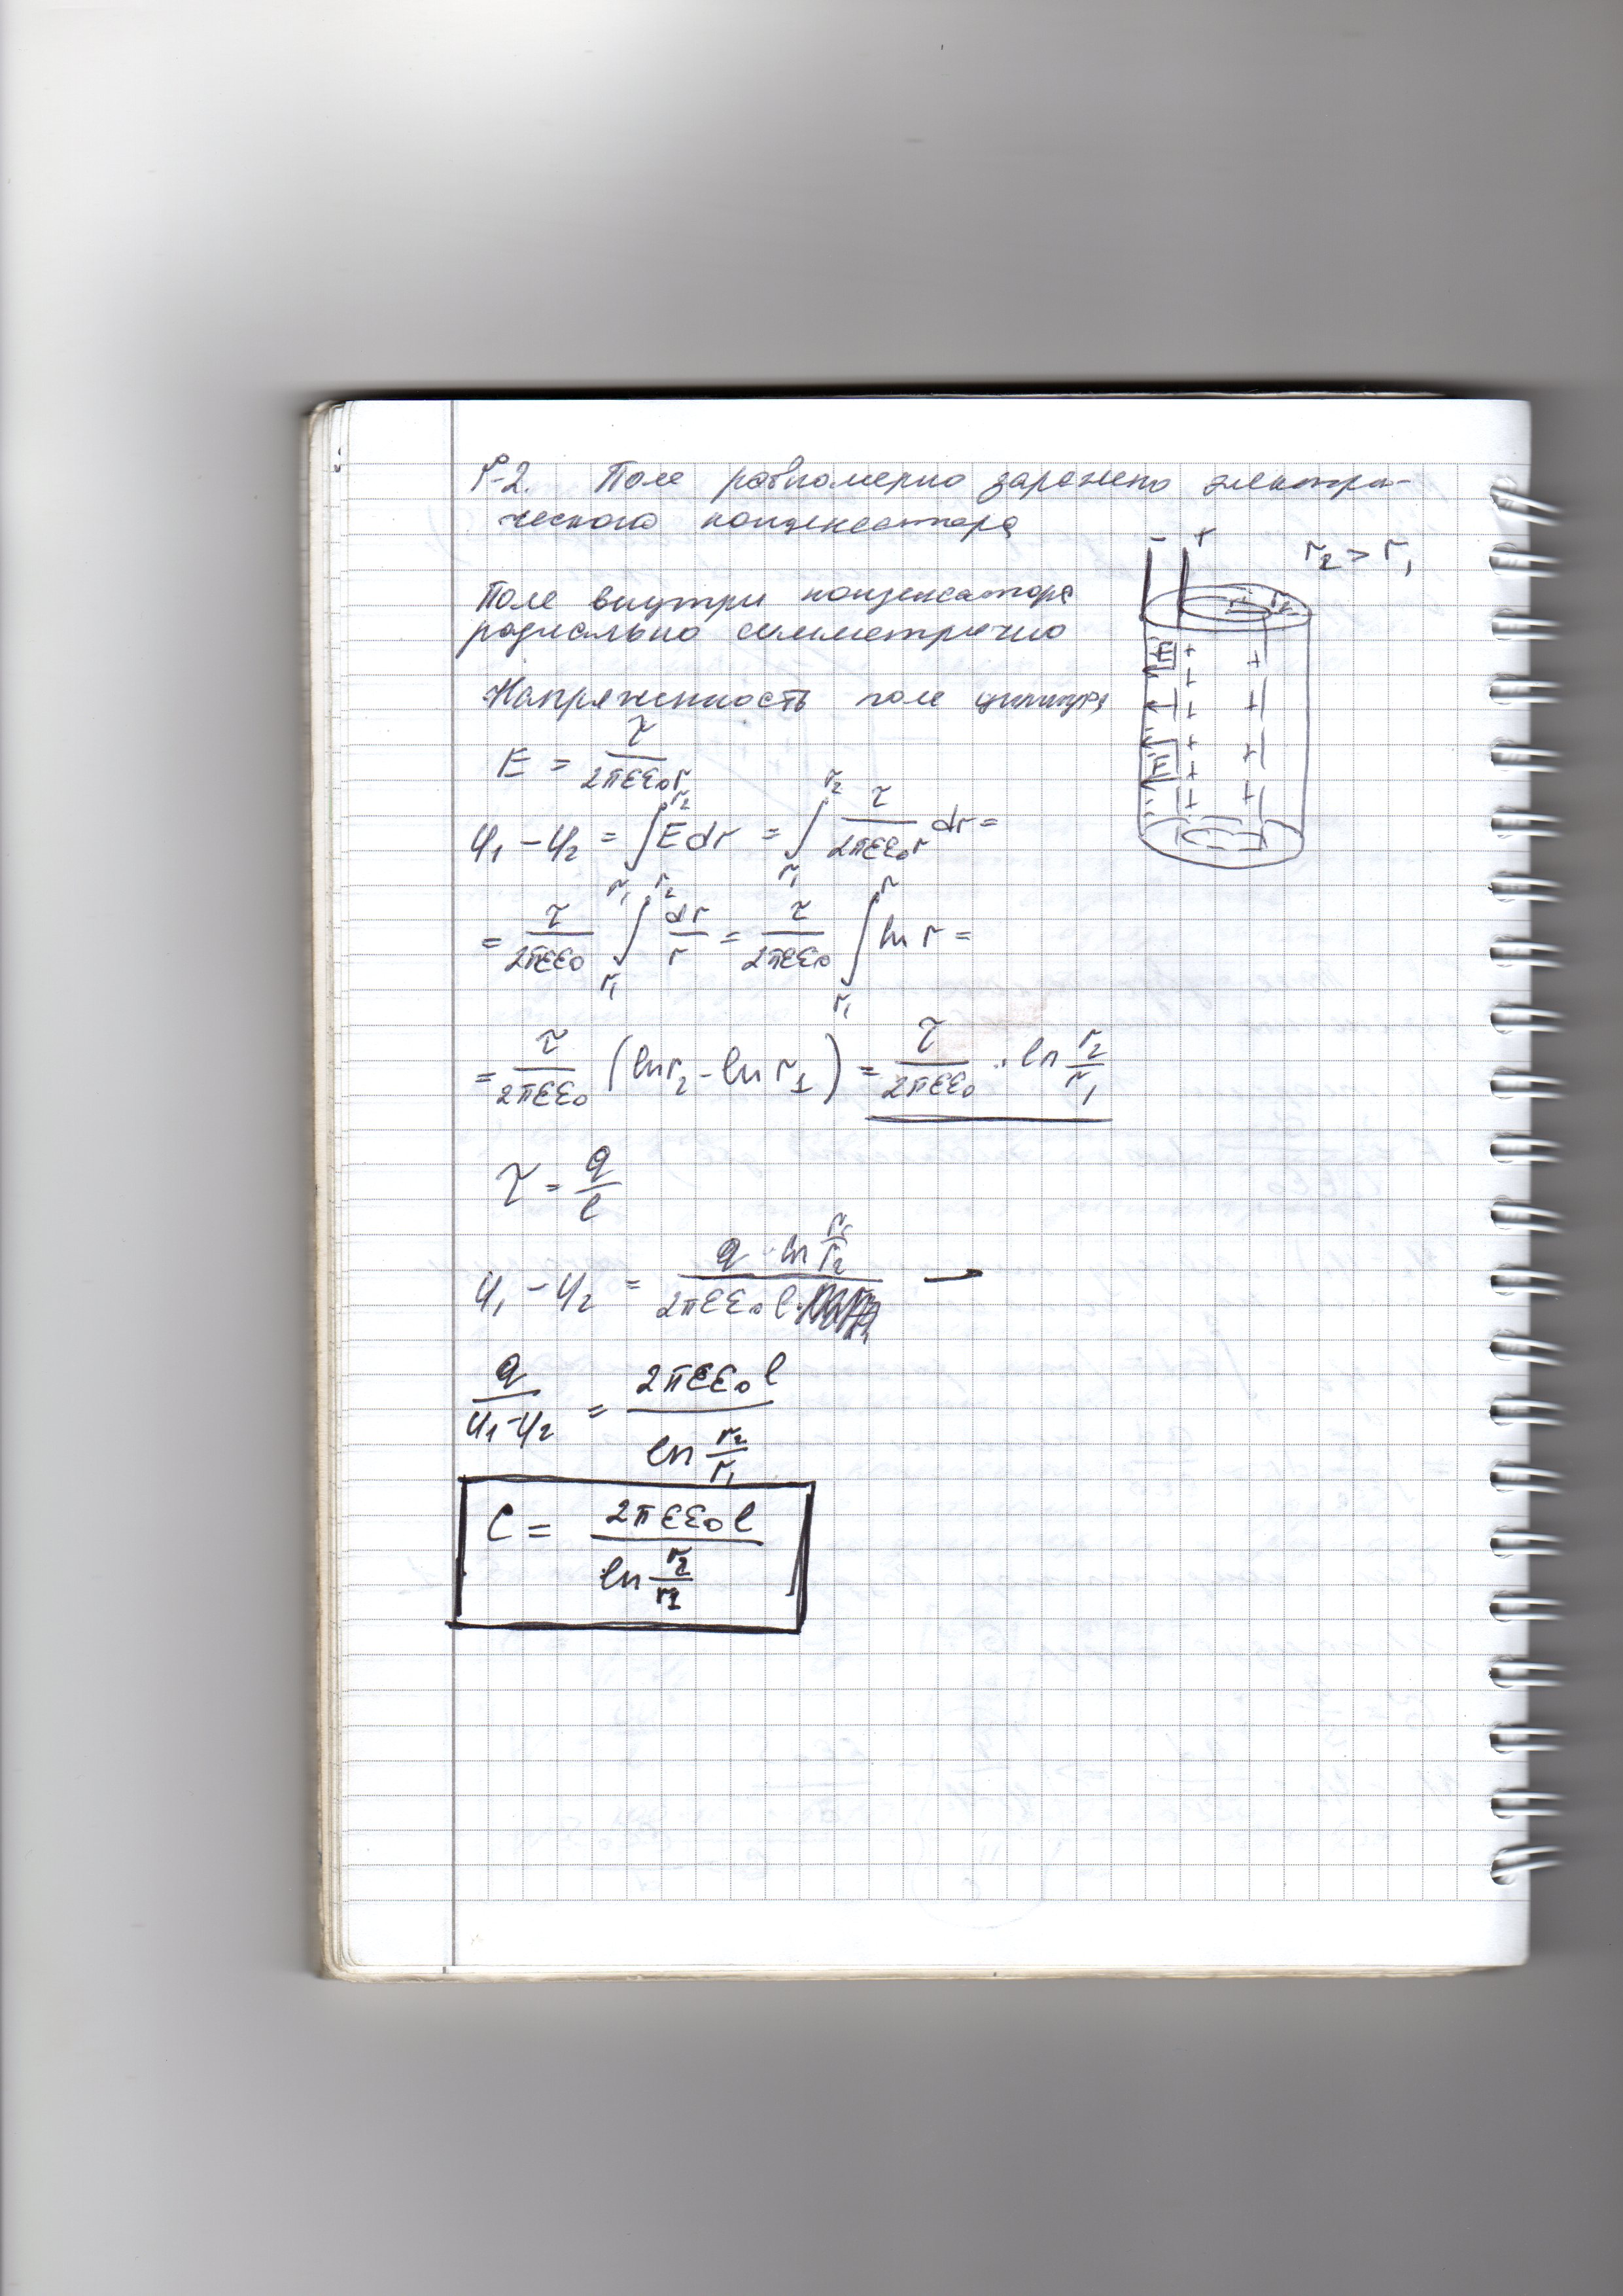 Поле равномерно заряжено электри-
ческого конденсатора
r₂ > r₁
- +
Поле внутри конденсатора
радиально симметрично
Напряженность поле цилиндра
E = τ / 2πεε₀r
φ₁ - φ₂ = ∫_{r₁}^{r₂} E dr = ∫_{r₁}^{r₂} τ / 2πεε₀r dr =
= τ / 2πεε₀ ∫_{r₁}^{r₂} dr / r = τ / 2πεε₀ ∫_{r₁}^{r} ln r =
= τ / 2πεε₀ (ln r₂ - ln r₁) = τ / 2πεε₀ · ln r₂ / r₁
τ = q / l
φ₁ - φ₂ = q · ln r₁ / r₂ / 2πεε₀ l · →
q / φ₁ - φ₂ = 2πεε₀ l / ln r₂ / r₁
C = 2πεε₀ l / ln r₂ / r₁
E
E